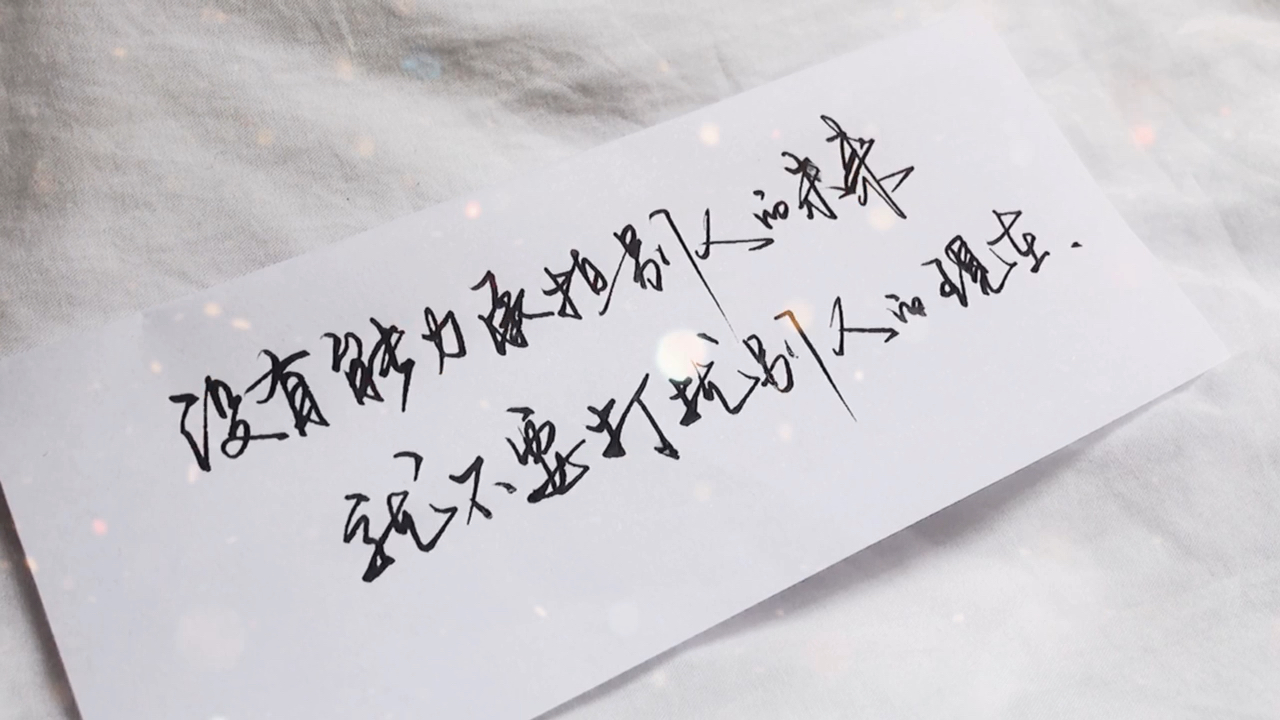 没有能力承担别人的未来
就不要打扰别人的现在.